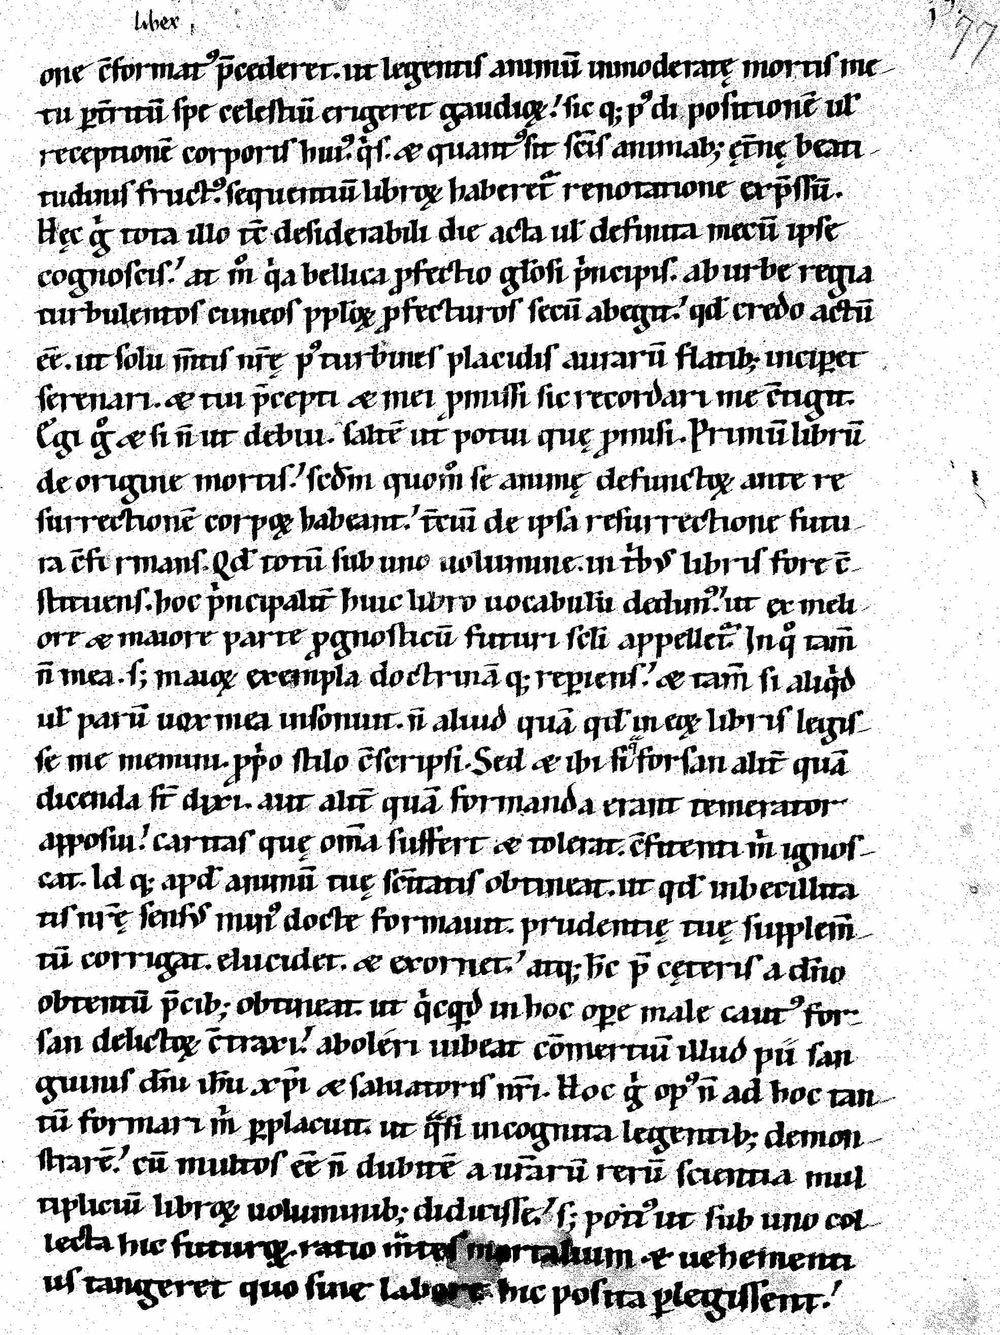 liber
77
one c̄format᷒ p̄cederet. ut legentis animū inmoderatę mortis me-
tu pt̄ritū spe celestiū erigeret gaudioꝝ. sic q; p᷒ di positionē ul̄
receptionē corporis hui᷒. q̇s. & quant᷒ sit sc̄is animab; ęt̄nę beati-
tudinis fruct᷒. sequentiū libroꝝ haberet᷒ renotatione exp̄ssū.
Hęc g̊ tota illo tc̄ desiderabili die acta ul̄ definita mecū ipse
cognoscis. at m̊ q̇a bellica ꝓfectio gl̄osi ṗncipis. ab urbe regia
turbulentos cuneos ppl̄oꝝ ꝓfecturos secū abegit. qd̄ credo actū
ēē. ut solū m̄tis nr̄ę p᷒ turbines placidis aurarū flatib; inciꝑet
serenari. & tui p̄cepti & mei ꝓmissi sic recordari me c̄tigit.
Egi g̊ & si n̄ ut debui. saltē ut potui quę ꝓmisi. Primū librū
de origine mortis. sc̄dm quom̊ se animę defunctoꝝ ante re
surrectionē corpoꝝ habeant. t̄ciū de ipsa resurrectione futu-
ra c̄firmans. Qd̄ totū sub uno uolumine. in tb᷒ libris fore c̄-
stituens. hoc ṗncipalit̄ huic libro uocabulū dedim᷒. ut ex meli-
ore & maiore parte ꝓgnosticū futuri scl̄i appellet᷒. In q̊ tam̄
n̄ mea. s; maioꝝ exempla doctrinā q; reꝑiens. & tam̄ si aliq̇d
ul̄ parū uox mea insonuit. n̄ aliud quā qd̄ in eoꝝ libris legis-
se me memini. ꝓṗo stilo c̄scripsi. Sed & ibi si forsan alit̄ quā
dicenda st̄ dixi. aut alit̄ quā formanda erant temerator
apposui. caritas quę om̄a suffert & tolerat. c̄fitenti ṁ ignos-
cat. Id q; apd̄ animū tuę sc̄itatis obtineat. ut qd̄ inbecillita
tis nr̄ę sens᷒ min᷒ docte formauit. prudentię tuę supplem̄-
tū corrigat. elucidet. & exornet. atq; hc̄ p̄ cęteris a dn̄o
obtentū p̄cib; obtineat. ut q̇cqd̄ in hoc oꝑe male caut᷒ for-
san delictoꝝ c̄traxi. aboleri iubeat cōmertiū illud pii san
guinis dn̄i ih̄u xp̄i & saluatoris nr̄i. Hoc g̊ op᷒ n̄ ad hoc tan-
tū formari ṁ ꝑplacuit. ut qͣsi incognita legentib; demon-
strarē. cū multos ēē n̄ dubitē a ur̄arū rerū scientia mul
tipliciū libroꝝ uoluminib; didicisse. s; poti᷒ ut sub uno col-
lecta hic futuroꝝ. ratio m̄tes mortalium . & uehementi
us tangeret quo sine labore hic posita ꝑlegissent.